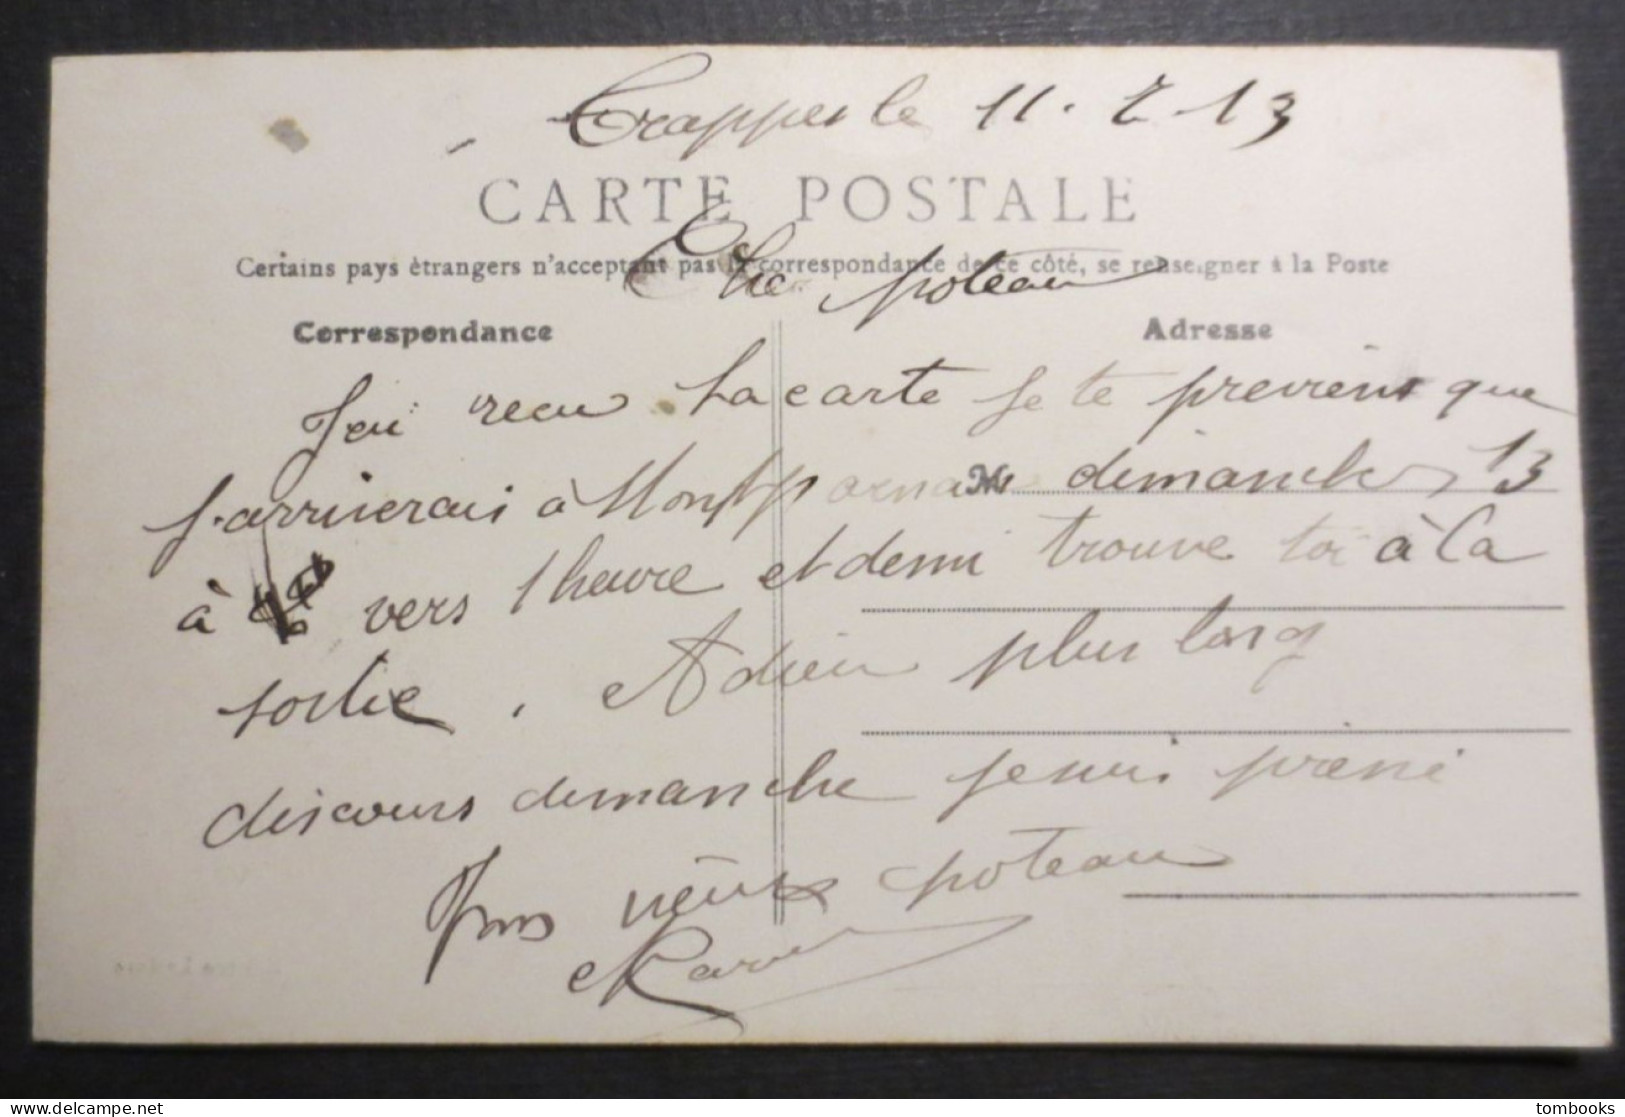 Trappes le 11. 7 13
CARTE POSTALE
Certains pays étrangers n'acceptant pas la correspondance de ce côté, se renseigner à la Poste
Che poteau
Correspondance
Adresse
Jai recu ta carte Je te previens que
j'arriverais à Montparnasse dimanche 13
M
à vers 1 heure et demi trouve toi à la
sortie. Adieu plus long
discours dimanche je suis préssé
Ton vieux poteau
tombooks